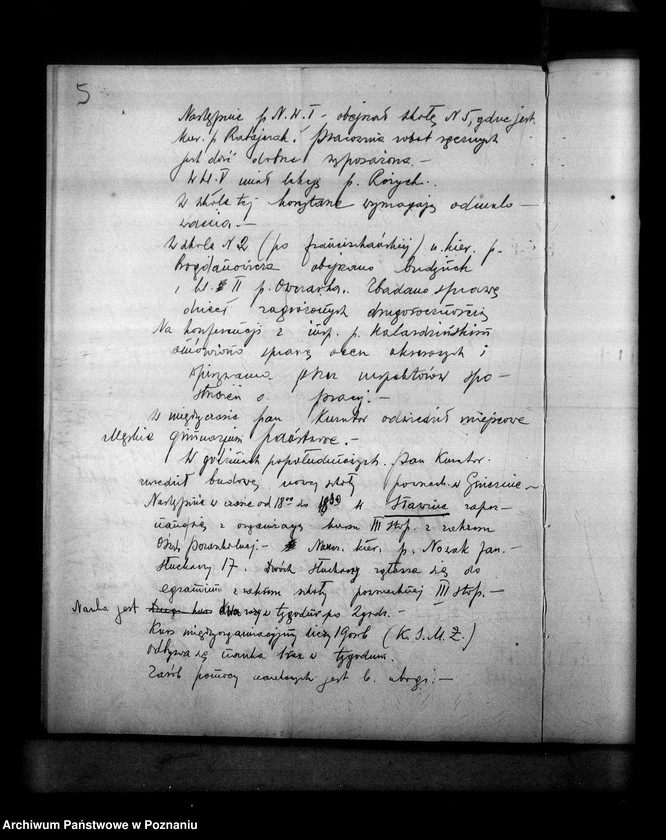 5
Następnie p. N. W. I – objechał szkołę N 5, gdzie jest
kier. p. Ratajczak i Pracownia robót ręcznych
jest dość dobrze wyposażona –
W kl. V miał lekcję p. Rożych..
W szkole tej korytarze wymagają odmalo-
wania. –
W szkole N 2 (po franciszkańskiej) u kier. p.
Bogdanowicza obejrzano budynek
i kl. II p. Owczarka. Zbadano sprawę
dzieci zagrożonych drugorocznością
Na konferencji z insp. p.
omówiono sprawę ocen okresowych i
spisywania przez inspektorów spo-
strzeżeń o pracy. –
W międzyczasie pan Kurator odwiedził miejscowe
Męskie gimnazjum państwowe. –
W godzinach popołudniowych Pan Kurator
zwiedził budowę nowej szkoły powsz. w Gnieźnie –
Następnie w czasie od 18⁰⁰ do 18³⁰ w Sławnie zapo-
znano się z organizacją kursu III stop. z zakresu
Ośw. Pozaszkolnej. – Naucz. kier. p. Nowak Jan. –
Słuchaczy 17. Dwóch słuchaczy zgłasza się do
egzaminu z zakresu szkoły powszechnej III stop. –
Nauka jest dwa razy w tygodniu po 2 godz. –
Kurs międzyorganizacyjny liczy 19 osób (K. S. M. Ż.)
odbywa się nauka 1 raz w tygodniu.
Zasób pomocy naukowych jest b. ubogi. –
Archiwum Państwowe w Poznaniu